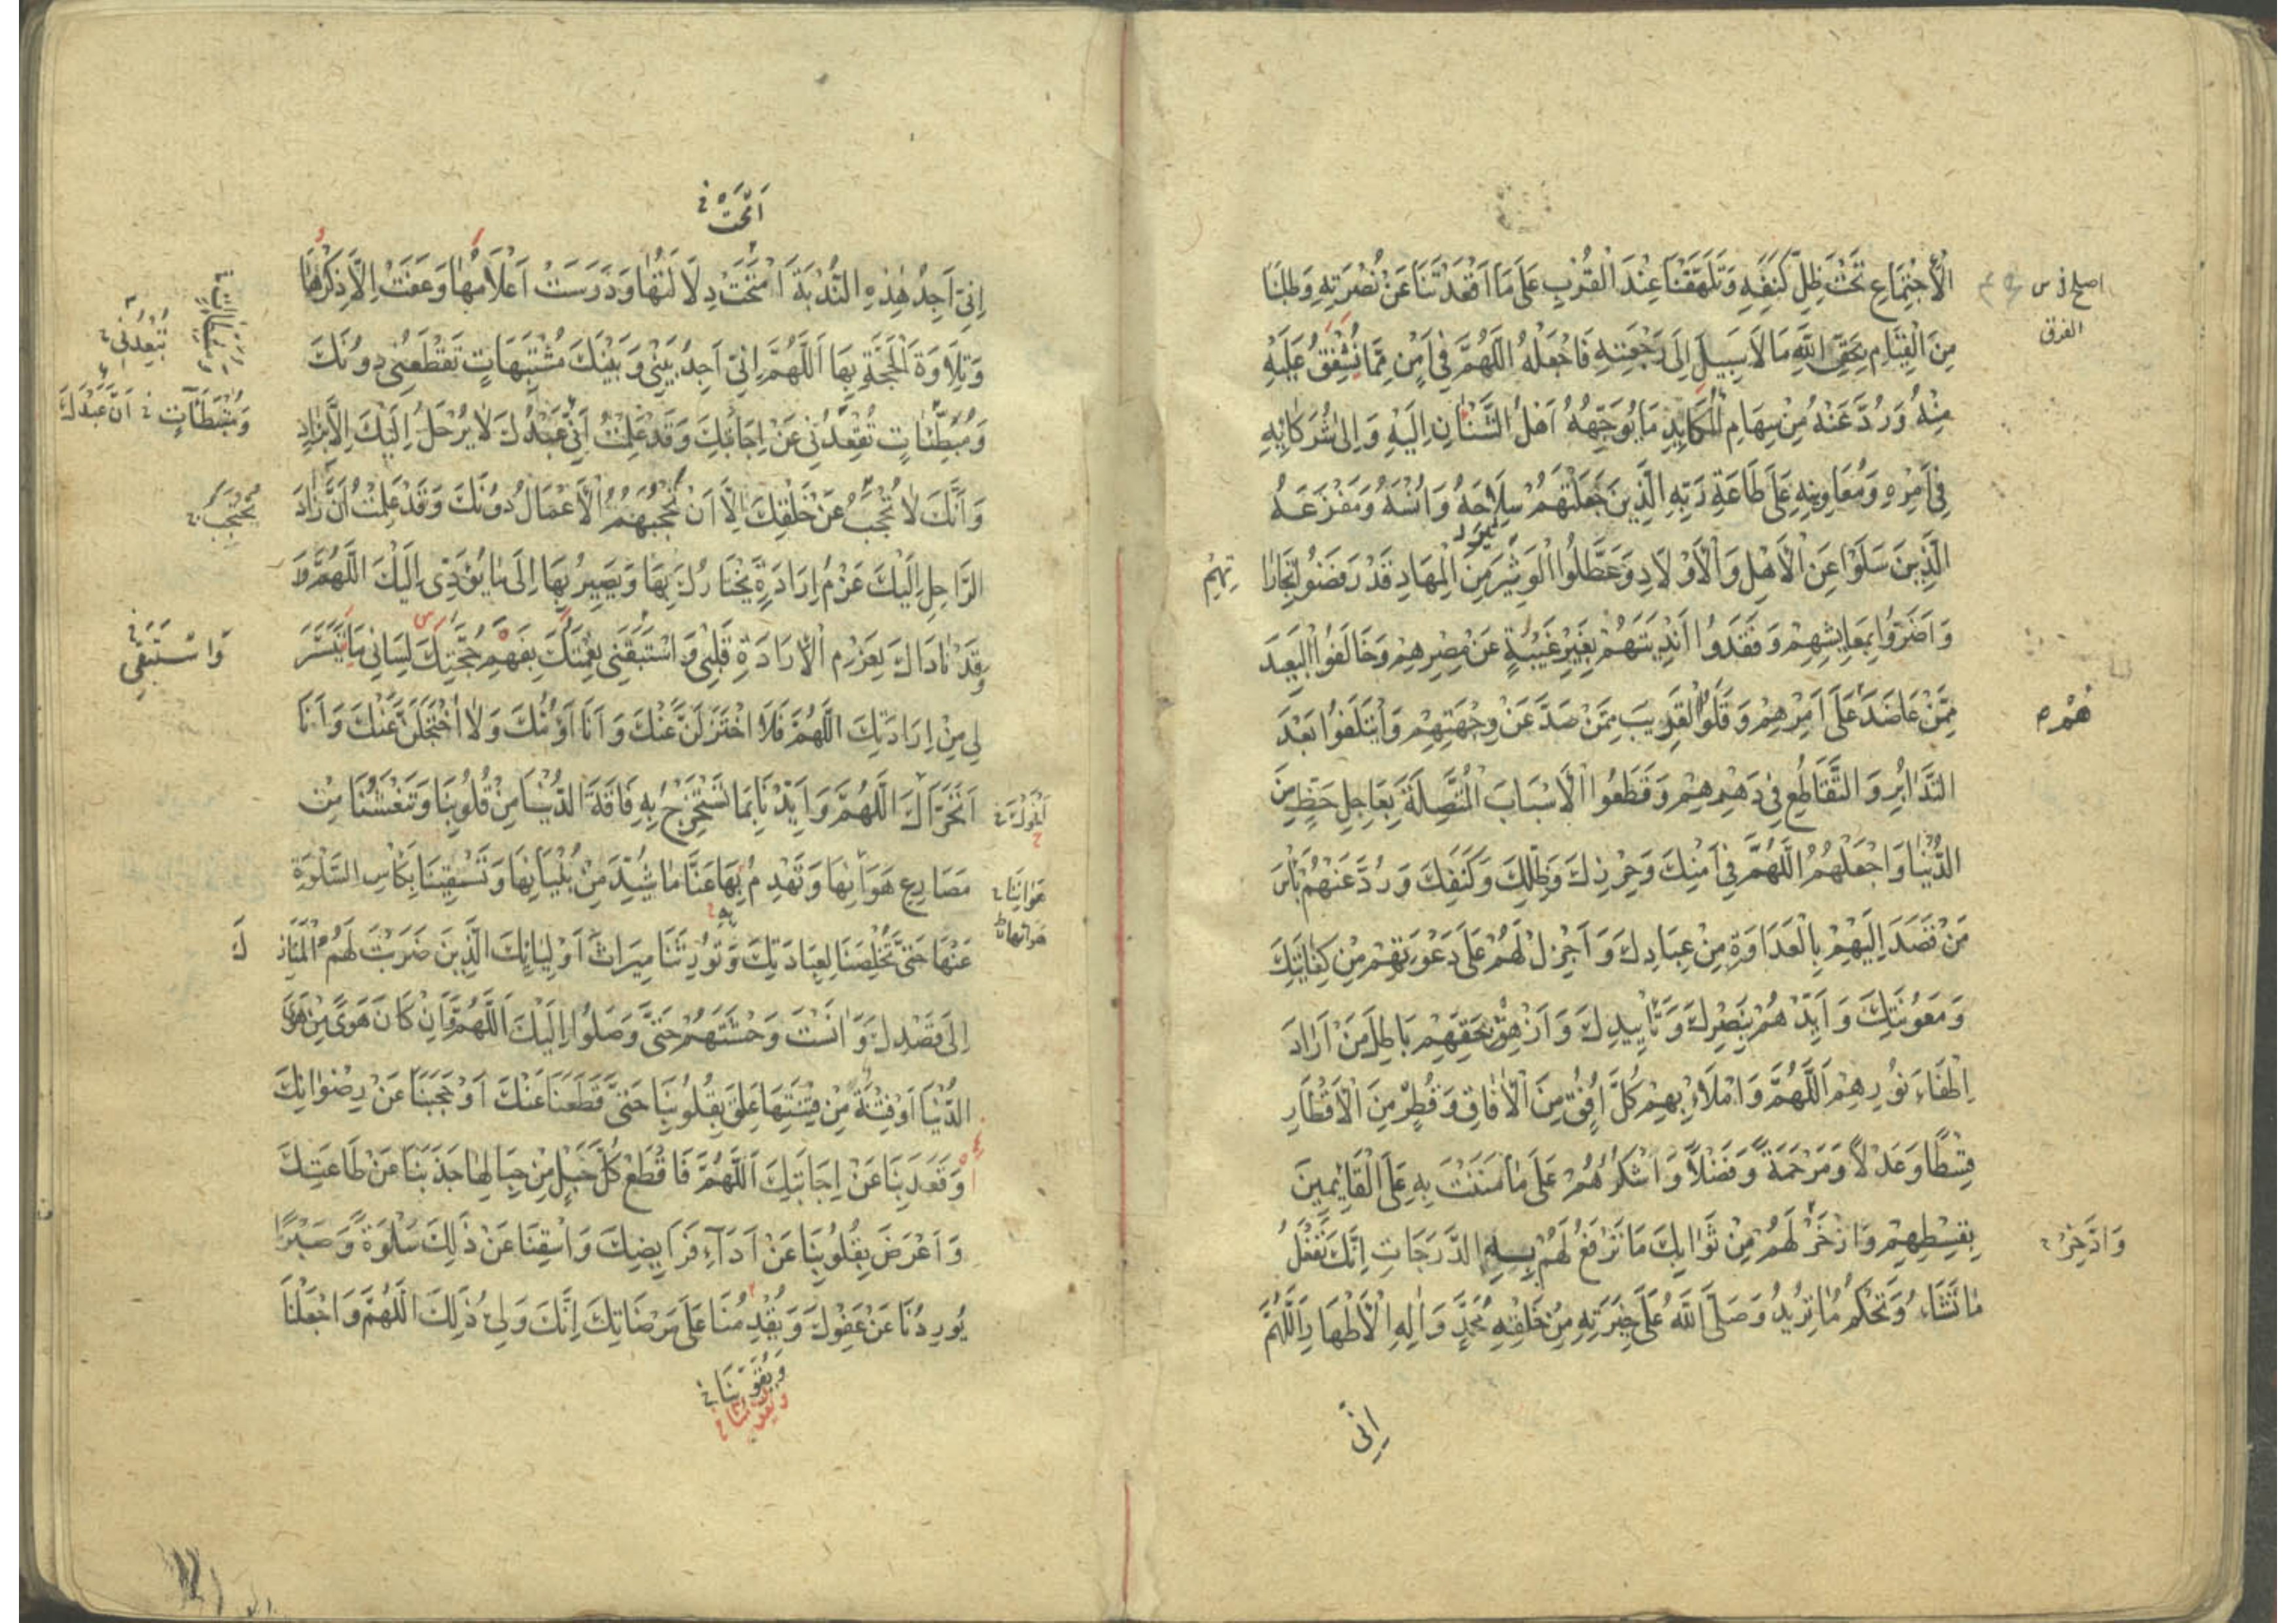 الْاِجْتِمَاعِ تَحْتَ ظِلِّ كَنَفِهِ وَتَلَهَّفْنَا عِنْدَ الْقُرْبِ عَلَى مَا اَقْعَدْتَنَا عَنْ نُصْرَتِهِ وَطَلَبْنَا
مِنَ الْقِيَامِ بِحَقِّ اللّٰهِ مَا لَا سَبِيلَ اِلَى رَجْعَتِهِ فَاجْعَلْهُ اللَّهُمَّ فِي اَمْنٍ مِمَّا نُشْفِقُ عَلَيْهِ
مِنْهُ وَرُدَّ عَنْهُ مِنْ سِهَامِ الْمَكَايِدِ مَا يُوَجِّهُهُ اَهْلُ الشَّنَاٰنِ اِلَيْهِ وَاِلَى شُرَكَائِهِ
فِي اَمْرِهِ وَمُعَاوِنِيهِ عَلَى طَاعَةِ رَبِّهِ الَّذِينَ جَعَلْتَهُمْ سِلَاحَهُ وَاُنْسَهُ وَمَفْزَعَهُ
الَّذِينَ سَلَوْا عَنِ الْاَهْلِ وَالْاَوْلَادِ وَعَطَّلُوا الْوَثِيرَ مِنَ الْمِهَادِ قَدْ رَفَضُوا تِجَارَا
تِهِمْ
وَاَضَرُّوا بِمَعَايِشِهِمْ وَفَقَدُوا اَنْدِيَتَهُمْ بِغَيْرِ غَيْبَةٍ عَنْ مِصْرِهِمْ وَخَالَفُوا الْبَعِيدَ
مِمَّنْ عَاضَدَ عَلَى اَمْرِهِمْ وَقَلَوُا الْقَرِيبَ مِمَّنْ صَدَّ عَنْ وِجْهَتِهِمْ وَائْتَلَفُوا بَعْدَ
هُمْ
التَّدَابُرِ وَالتَّقَاطُعِ فِي دَهْرِهِمْ وَقَطَعُوا الْاَسْبَابَ الْمُتَّصِلَةَ بِعَاجِلِ حَظٍّ مِنَ
الدُّنْيَا وَاجْعَلْهُمُ اللَّهُمَّ فِي اَمْنِكَ وَحِرْزِكَ وَظِلِّكَ وَكَنَفِكَ وَرُدَّ عَنْهُمْ بَأْسَ
مَنْ قَصَدَ اِلَيْهِمْ بِالْعَدَاوَةِ مِنْ عِبَادِكَ وَاَجْزِلْ لَهُمْ عَلَى دَعْوَتِهِمْ مِنْ كِفَايَتِكَ
وَمَعُونَتِكَ وَاَيِّدْهُمْ بِنَصْرِكَ وَتَأْيِيدِكَ وَاَزْهِقْ بِحَقِّهِمْ بَاطِلَ مَنْ اَرَادَ
اِطْفَاءَ نُورِهِمْ اَللَّهُمَّ وَامْلَأْ بِهِمْ كُلَّ اُفُقٍ مِنَ الْاٰفَاقِ وَقُطْرٍ مِنَ الْاَقْطَارِ
قِسْطًا وَعَدْلًا وَمَرْحَمَةً وَفَضْلًا وَاشْكُرْهُمْ عَلَى مَا مَنَنْتَ بِهِ عَلَى الْقَائِمِينَ
بِقِسْطِهِمْ وَاذْخَرْ لَهُمْ مِنْ ثَوَابِكَ مَا تَرْفَعُ لَهُمْ بِهِ الدَّرَجَاتِ اِنَّكَ تَفْعَلُ
وَادَّخِرْ
مَا تَشَاءُ وَتَحْكُمُ مَا تُرِيدُ وَصَلَّى اللّٰهُ عَلَى خِيَرَتِهِ مِنْ خَلْقِهِ مُحَمَّدٍ وَاٰلِهِ الْاَطْهَارِ اَللَّهُمَّ
اِنِّي
اِنِّي اَجِدُ هٰذِهِ النُّدْبَةَ امْتَحَتْ دِلَالَتُهَا وَدَرَسَتْ اَعْلَامُهَا وَعَفَتْ اِلَّا ذِكْرُهَا
وَتِلَاوَةُ الْحُجَّةِ بِهَا اَللَّهُمَّ اِنِّي اَجِدُ بَيْنِي وَبَيْنَكَ مُشْتَبِهَاتٍ تَقْطَعُنِي دُونَكَ
وَمُبْطِئَاتٍ تُقْعِدُنِي عَنْ اِجَابَتِكَ وَقَدْ عَلِمْتُ اَنَّ عَبْدَكَ لَا يُرْحَلُ اِلَيْكَ اِلَّا بِزَادٍ
وَاَنَّكَ لَا تُحْجَبُ عَنْ خَلْقِكَ اِلَّا اَنْ تَحْجُبَهُمُ الْاَعْمَالُ دُونَكَ وَقَدْ عَلِمْتُ اَنَّ زَادَ
الرَّاحِلِ اِلَيْكَ عَزْمُ اِرَادَةٍ يَخْتَارُكَ بِهَا وَيَصِيرُ بِهَا اِلَى مَا يُؤَدِّي اِلَيْكَ اللَّهُمَّ
وَقَدْ نَادَاكَ بِعَزْمِ الْاِرَادَةِ قَلْبِي وَاسْتَبْقِنِي نِعْمَتَكَ بِفَهْمِ حُجَّتِكَ لِسَانِي مَا تَيَسَّرَ
وَاسْتَبْقَى
لِي مِنْ اِرَادَتِكَ اللَّهُمَّ فَلَا اُخْتَزَلَنَّ عَنْكَ وَاَنَا اَؤُمُّكَ وَلَا اُخْتَلَجَنَّ عَنْكَ وَاَنَا
اَتَحَرَّاكَ اللَّهُمَّ وَاَيِّدْنَا بِمَا تَسْتَخْرِجُ بِهِ فَاقَةَ الدُّنْيَا مِنْ قُلُوبِنَا وَتَنْعَشُنَا مِنْ
مَصَارِعِ هَوَانِهَا وَتَهْدِمُ بِهَا عَنَّا مَا شُيِّدَ مِنْ بُنْيَانِهَا وَتَسْقِينَا بِكَأْسِ السَّلْوَةِ
عَنْهَا حَتَّى تُخْلِصَنَا لِعِبَادَتِكَ وَتُورِثَنَا مِيرَاثَ اَوْلِيَائِكَ الَّذِينَ ضَرَبْتَ لَهُمُ الْمَنَازِلَ
اِلَى قَصْدِكَ وَاٰنَسْتَ وَحْشَتَهُمْ حَتَّى وَصَلُوا اِلَيْكَ اَللَّهُمَّ وَاِنْ كَانَ هَوًى مِنْ هَوَى
الدُّنْيَا اَوْ فِتْنَةٌ مِنْ فِتْنَتِهَا عَلِقَ بِقُلُوبِنَا حَتَّى قَطَعَنَا عَنْكَ اَوْ حَجَبَنَا عَنْ رِضْوَانِكَ
وَقَعَدَ بِنَا عَنْ اِجَابَتِكَ اَللَّهُمَّ فَاقْطَعْ كُلَّ حَبْلٍ مِنْ حِبَالِهَا جَذَبَنَا عَنْ طَاعَتِكَ
وَاَعْرَضَ بِقُلُوبِنَا عَنْ اَدَاءِ فَرَايِضِكَ وَاسْقِنَا عَنْ ذٰلِكَ سَلْوَةً وَصَبْرًا
يُورِدُنَا عَنْ عَفْوِكَ وَيُقْدِمُنَا عَلَى مَرْضَاتِكَ اِنَّكَ وَلِيُّ ذٰلِكَ اَللَّهُمَّ وَاجْعَلْنَا